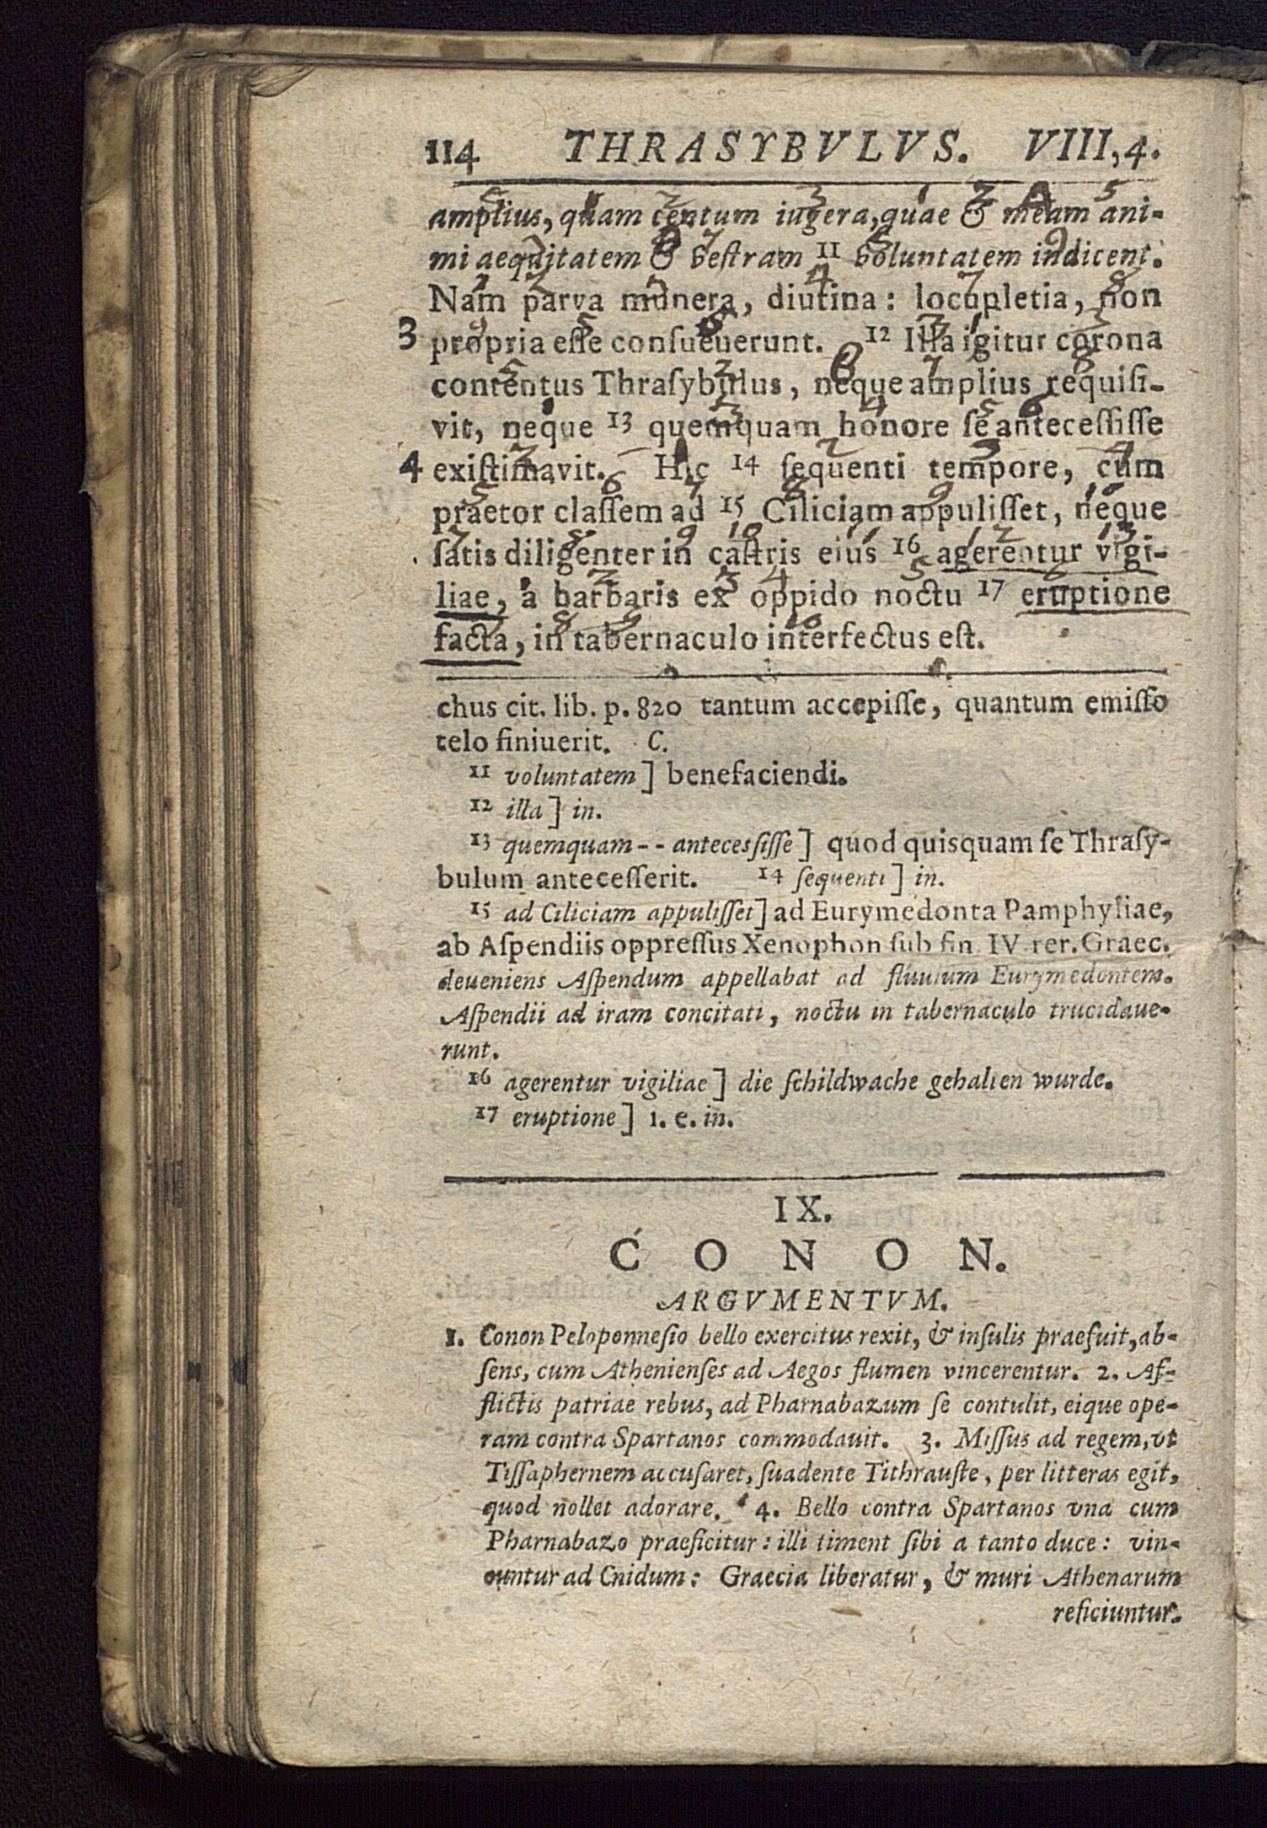 114 THRASYBVLVS. VIII,4.
amplius, quam centum iugera, quae & meam ani-
mi aequitatem & vestram 11 voluntatem indicent.
Nam parva munera, diutina: locupletia, non
3 propria esse consueuerunt. 12 Illa igitur corona
contentus Thrasybulus, neque amplius requisi-
vit, neque 13 quemquam honore se antecessisse
4 existimavit. Hic 14 sequenti tempore, cum
praetor classem ad 15 Ciliciam appulisset, neque
satis diligenter in castris eius 16 agerentur vigi-
liae, a barbaris ex oppido noctu 17 eruptione
facta, in tabernaculo interfectus est.
chus cit. lib. p. 820 tantum accepisse, quantum emisso
telo finiuerit. C.
11 voluntatem] benefaciendi.
12 illa] in.
13 quemquam - - antecessisse] quod quisquam se Thrasy-
bulum antecesserit. 14 sequenti] in.
15 ad Ciliciam appulisset] ad Eurymedonta Pamphyliae,
ab Aspendiis oppressus Xenophon sub fin. IV rer. Graec.
deueniens Aspendum appellabat ad fluuium Eurymedontem.
Aspendii ad iram concitati, noctu in tabernaculo trucidaue-
runt.
16 agerentur vigiliae] die schildwache gehalten wurde.
17 eruptione] 1. e. in.
IX.
CONON.
ARGVMENTVM.
1. Conon Peloponnesio bello exercitus rexit, & insulis praefuit, ab-
sens, cum Athenienses ad Aegos flumen vincerentur. 2. Af-
flictis patriae rebus, ad Pharnabazum se contulit, eique ope-
ram contra Spartanos commodauit. 3. Missus ad regem, vt
Tissaphernem accusaret, suadente Tithrauste, per litteras egit,
quod nollet adorare. 4. Bello contra Spartanos vna cum
Pharnabazo praeficitur: illi timent sibi a tanto duce: vin-
cuntur ad Cnidum: Graecia liberatur, & muri Athenarum
reficiuntur.